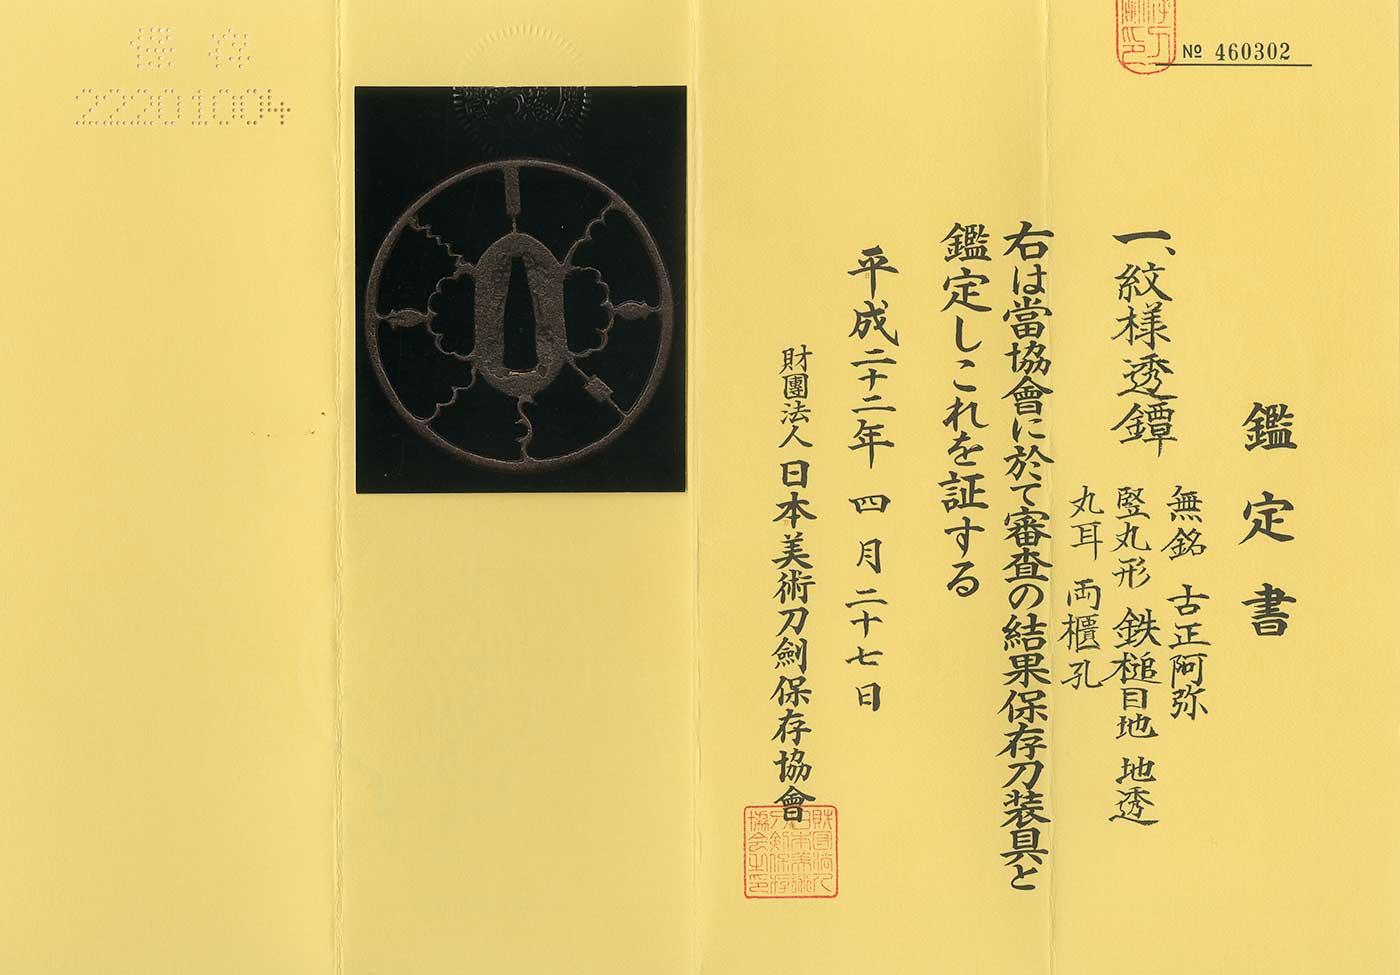 № 460302
鑑定書
一、紋様透鐔
無銘 古正阿弥
竪丸形 鉄槌目地 地透
丸耳 両櫃孔
右は當協會に於て審査の結果保存刀装具と
鑑定しこれを証する
平成二十二年 四月二十七日
財團法人 日本美術刀劍保存協會
保存
22201004